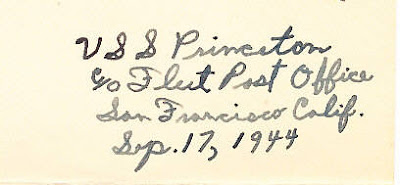 USS Princeton
c/o Fleet Post Office
San Francisco Calif.
Sep. 17, 1944